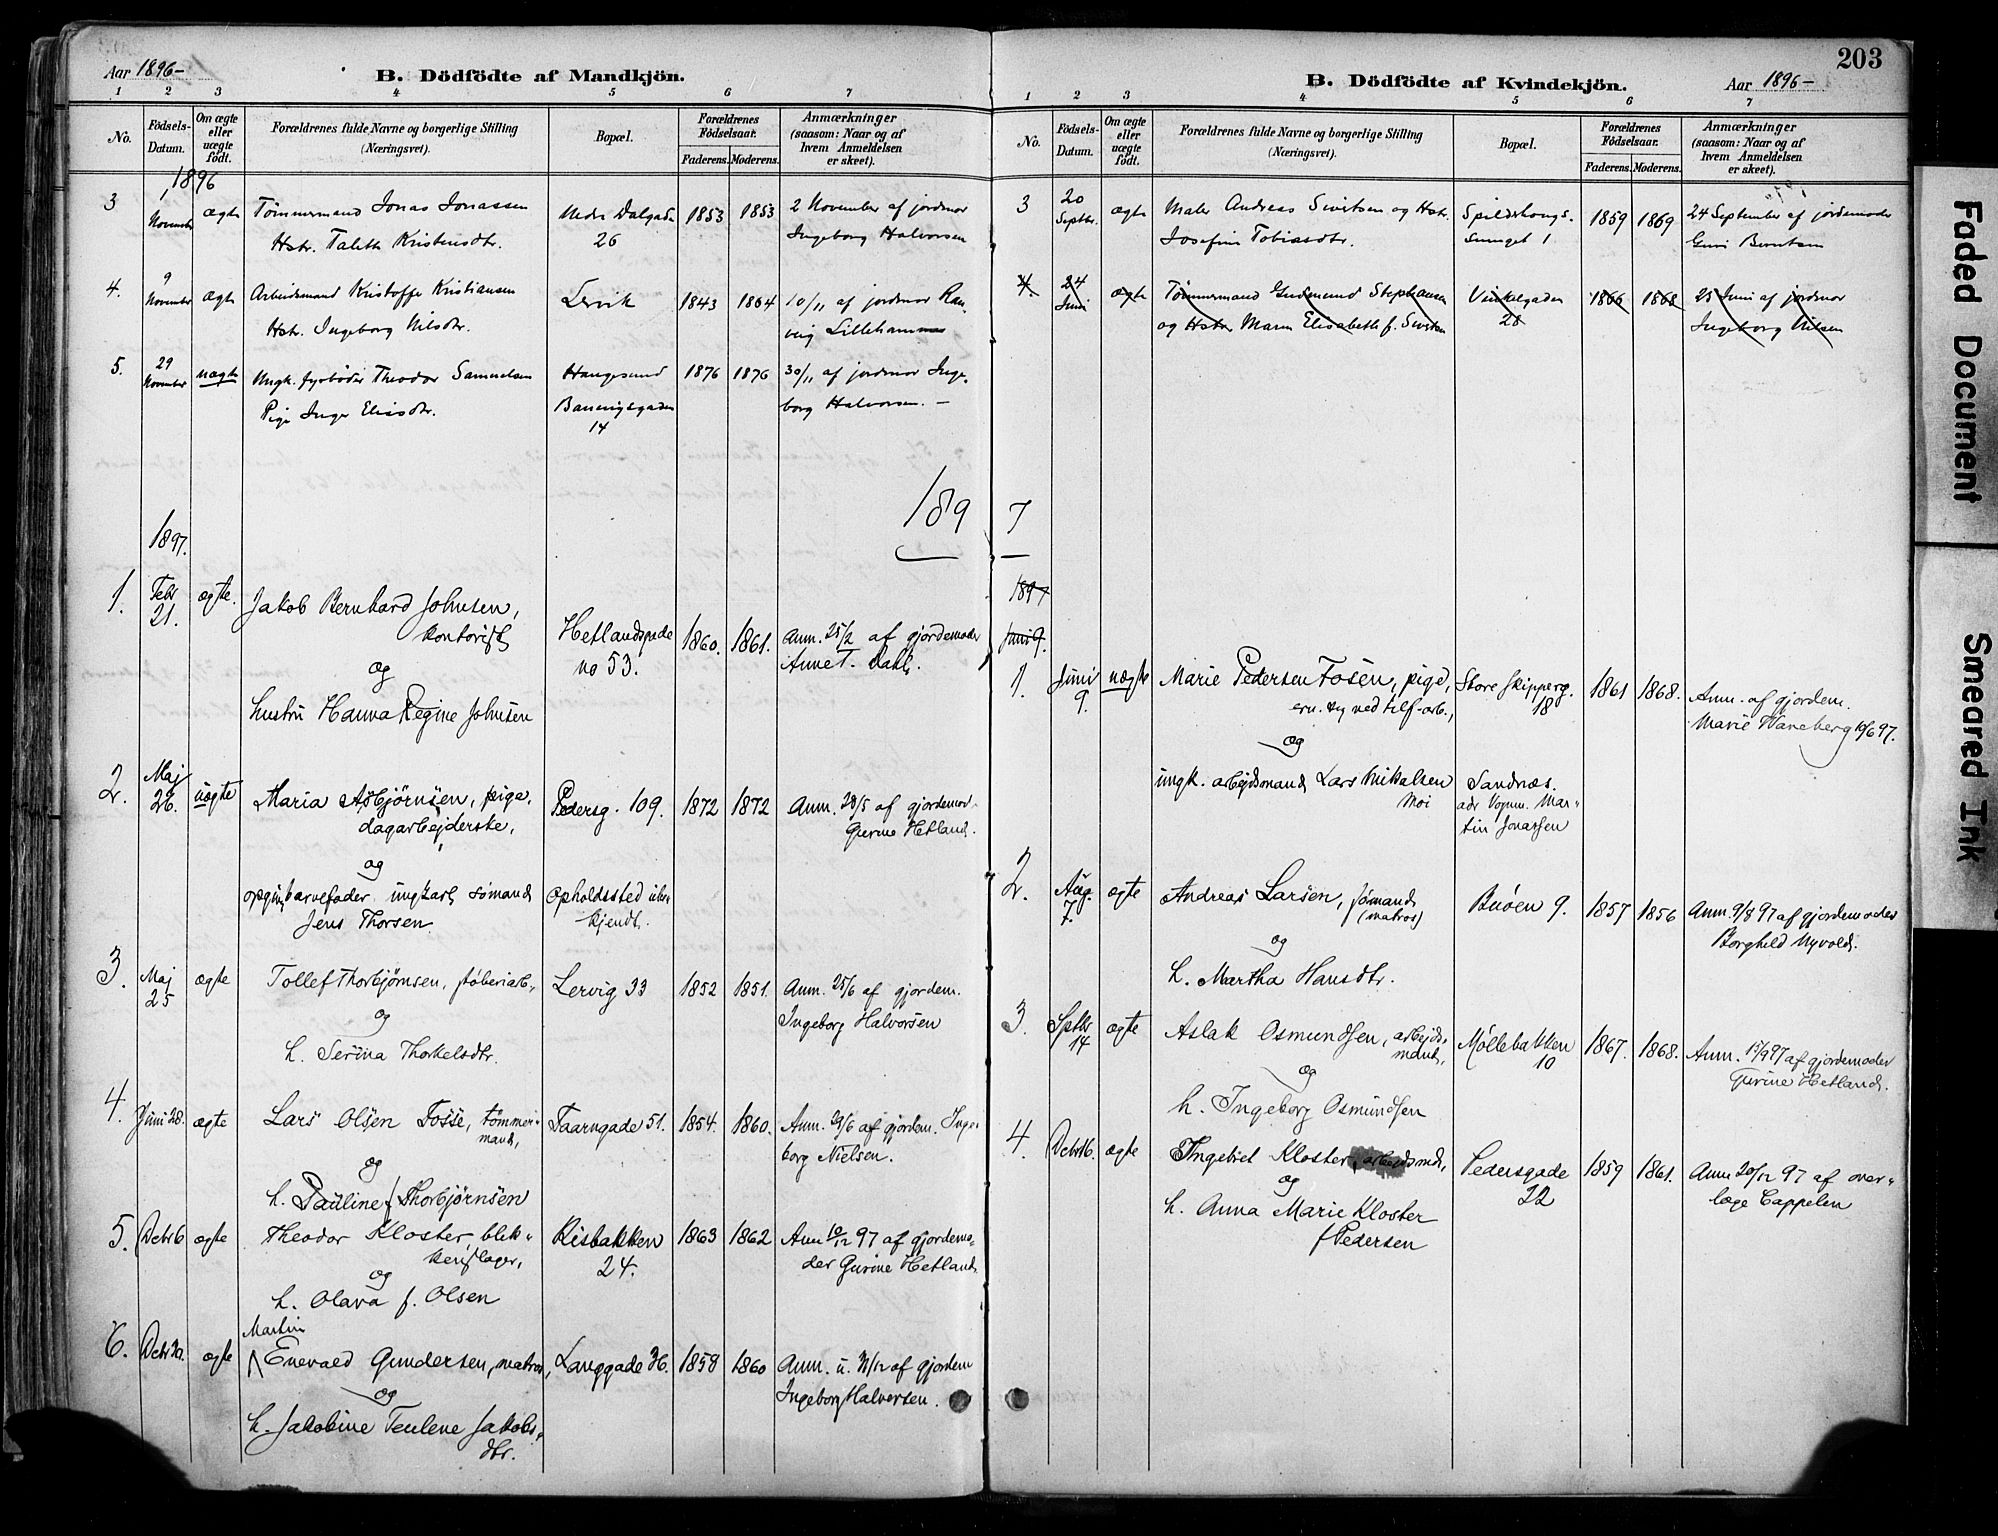 Aar 1896-
B. Dödfödte af Mandkjön.
1 2 3 4 5 6 7
No.
Födsels-Datum.
Om ægte eller uægte födt.
Forældrenes fulde Navne og borgerlige Stilling (Næringsvei).
Bopæl.
Forældrenes Födselsaar.
Faderens. Moderens.
Anmærkninger (saasom: Naar og af hvem Anmeldelsen er skeet).
1896
3 1 November ægte Tømmermand Jonas Jonassen Nedr Dalgade 1853 1853 2 November af jordmor
Hstr. Talette Kristensdtr. 26 Ingeborg Halvorsen
4. 9 November ægte Arbeidsmand Kristoffe Kristiansen Lervik 1843 1864 10/11 af jordmor Ran-
Hstr. Ingeborg Nilsdtr. veig Lillehammer
5. 29 November uægte Ungk. fyrbøder Theodor Samuelsen Haugesund 1876 1876 30/11 af jordmor Inge-
Pige Inger Eliasdtr. Banevigsgaden 14 borg Halvorsen. -
1897
1897.
1. Febr 21. ægte. Jakob Bernhard Johnsen,
kontorist Hetlandsgade 1860. 1861. Anm. 25/2 af gjordemoder
og no 53. Anne T. Dahl.
hustru Hanna Regine Johnsen
2. Maj 26. uægte Maria Asbjørnsen, pige, Pedersg. 109. 1872 1872 Anm. 28/5 af gjordemod.
dagarbejderske, Gurine Hetland.
og
opgiv. barnefader ungkarl sømand opholdssted ube-
Jens Thorsen kjendt.
3. Maj 25 ægte Tollef Thorbjørnsen, støberiarb. Lervig 33 1852 1851. Anm. 25/6 af gjordem.
og Ingeborg Halvorsen
h. Serina Thorkelsdtr.
4. Juni 28. ægte Lars Olsen Fosse, tømmer- Taarngade 51. 1854. 1860. Anm. 29/6 af gjordem. Inge-
mand, borg Nielsen.
og
h. Pauline f Thorbjørnsen
5. Debr 6 ægte Theodor Kloster, blik- Risbakken 1863 1862 Anm 10/12 97 af gjordemo-
kenslager, 24. der Gurine Hetland.
og
h. Olava f. Olsen
Martin
6. Debr 30. ægte Enevald Gundersen, matros, Langgade 36. 1858 1860 Anm. u. 31/12 af gjordem
og Ingeborg Halvorsen.
h. Jakobine Teulene Jakobs-
dtr.
203
B. Dödfödte af Kvindekjön.
Aar 1896-
1 2 3 4 5 6 7
No.
Födsels-Datum.
Om ægte eller uægte födt.
Forældrenes fulde Navne og borgerlige Stilling (Næringsvei).
Bopæl.
Forældrenes Födselsaar.
Faderens. Moderens.
Anmærkninger (saasom: Naar og af hvem Anmeldelsen er skeet).
3 20 Septbr. ægte Maler Andreas Sivertsen og Hstr. Spilderhaugs- 1859 1869 24 September af jordemoder
Josefine Tobiasdtr. smuget 1 Guri Berntsen
4. 24 Juni ægte Tømmermand Gudmund Stephansen Vinkelgaden 1866 1868 25 Juni af jordmor
og Hstr Maren Elisabeth f. Sivertsen 28 Ingeborg Nilsen
1897
Juni 9.
1. Juni 9. uægte Marie Pedersen Fosen, pige, Store Skipperg. 1861 1868. Anm. af gjordem.
ern. sig ved tilf-arb., 18 Marie Waneberg 10/6 97.
og
ungk. arbejdsmand Lars Mikalsen Sandnæs.
Moi adr Vognm. Mar-
tin Jonassen
2. Aug. 7. ægte Andreas Larsen, sømand Buøen 9. 1857 1856 Anm. 9/8 97 af gjordemoder
(matros) Borghild Nyvold.
og
h. Martha Hansdtr.
3. Sptbr 14 ægte Aslak Osmundsen, arbejds- Møllebakken 1867. 1868. Anm. 17/9 97 af gjordemoder
mand, 10 Gurine Hetland.
og
h. Ingeborg Osmundsen
4. Debr 16. ægte Ingebret Kloster, arbejdsmd., Pedersgade 1859 1861. Anm 20/12 97 af over-
og 22 læge Cappelen
h. Anna Marie Kloster
f Pedersen
Faded Document
Smeared Ink